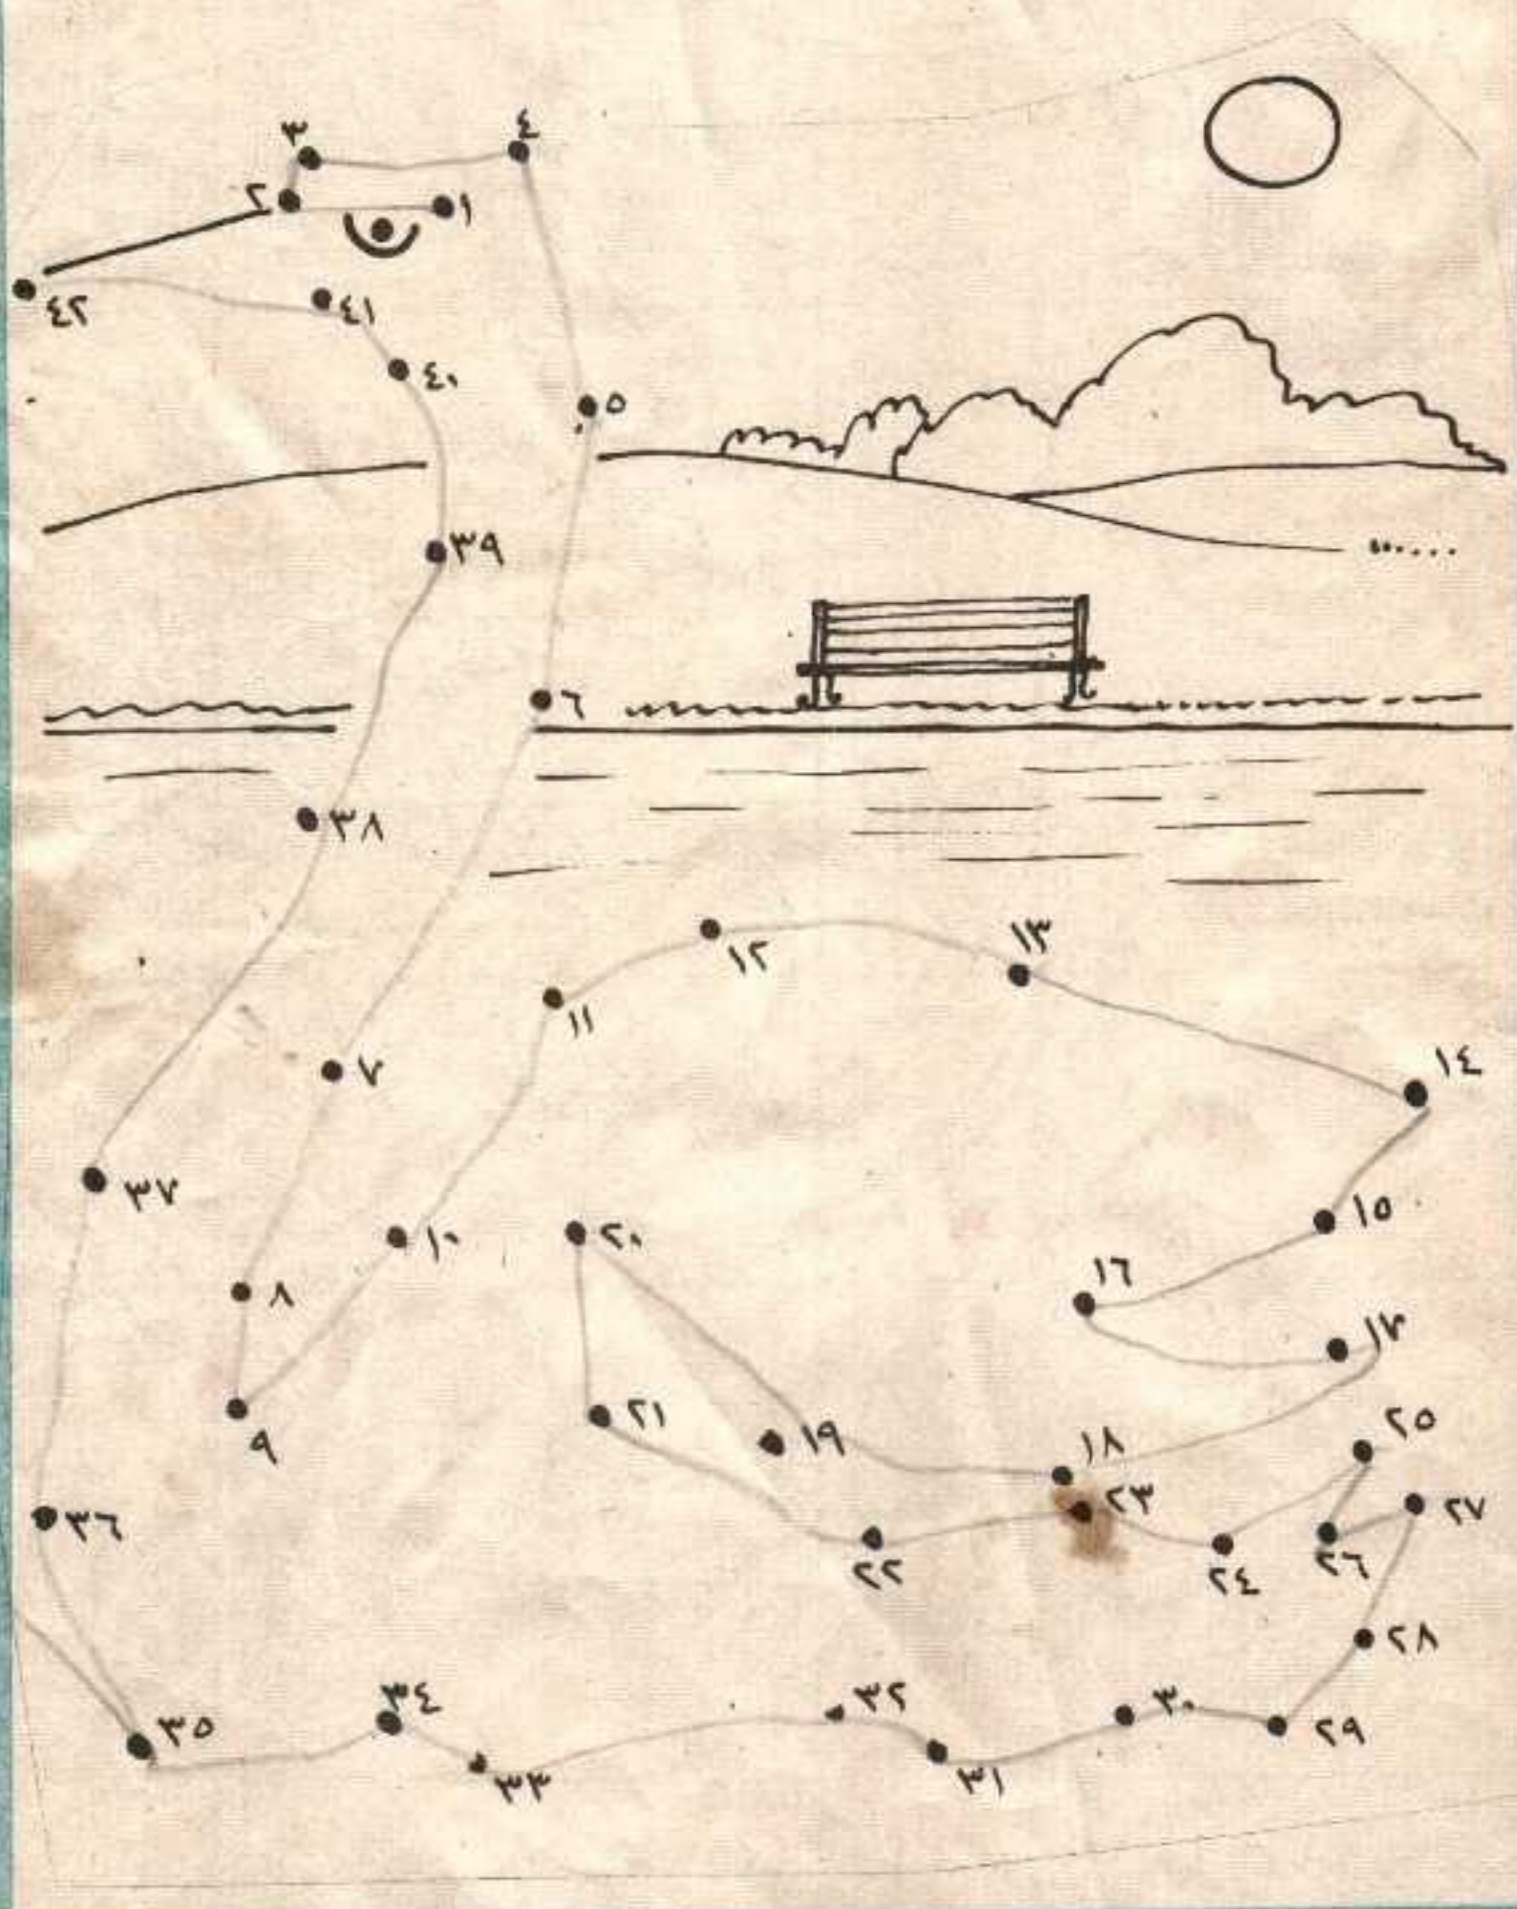 ٣ ٤
٢ ١
٤٢ ٤١
٤٠
٥
٣٩
٦
٣٨
١٢ ١٣
١١
٧ ١٤
٣٧ ١٠ ٢٠ ١٥
٨ ١٦
١٧
٩ ٢١ ١٩ ١٨ ٢٥
٣٦ ٢٣ ٢٧
٢٢ ٢٤ ٢٦
٢٨
٣٥ ٣٤ ٣٢ ٣٠ ٢٩
٣٣ ٣١